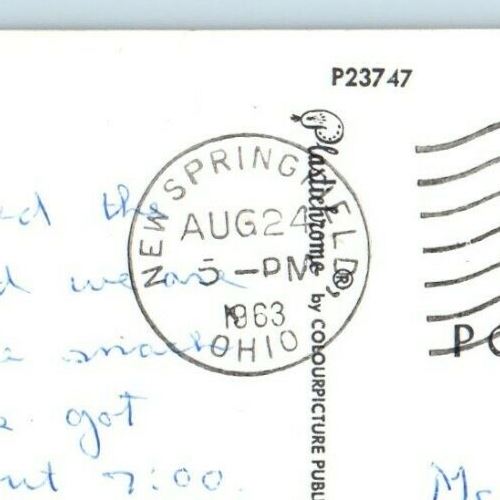 P23747
NEW SPRINGFIELD,
AUG 24
5 - PM
1963
OHIO
Plastichrome® by COLOURPICTURE PUBL
the
we are
got
7:00.